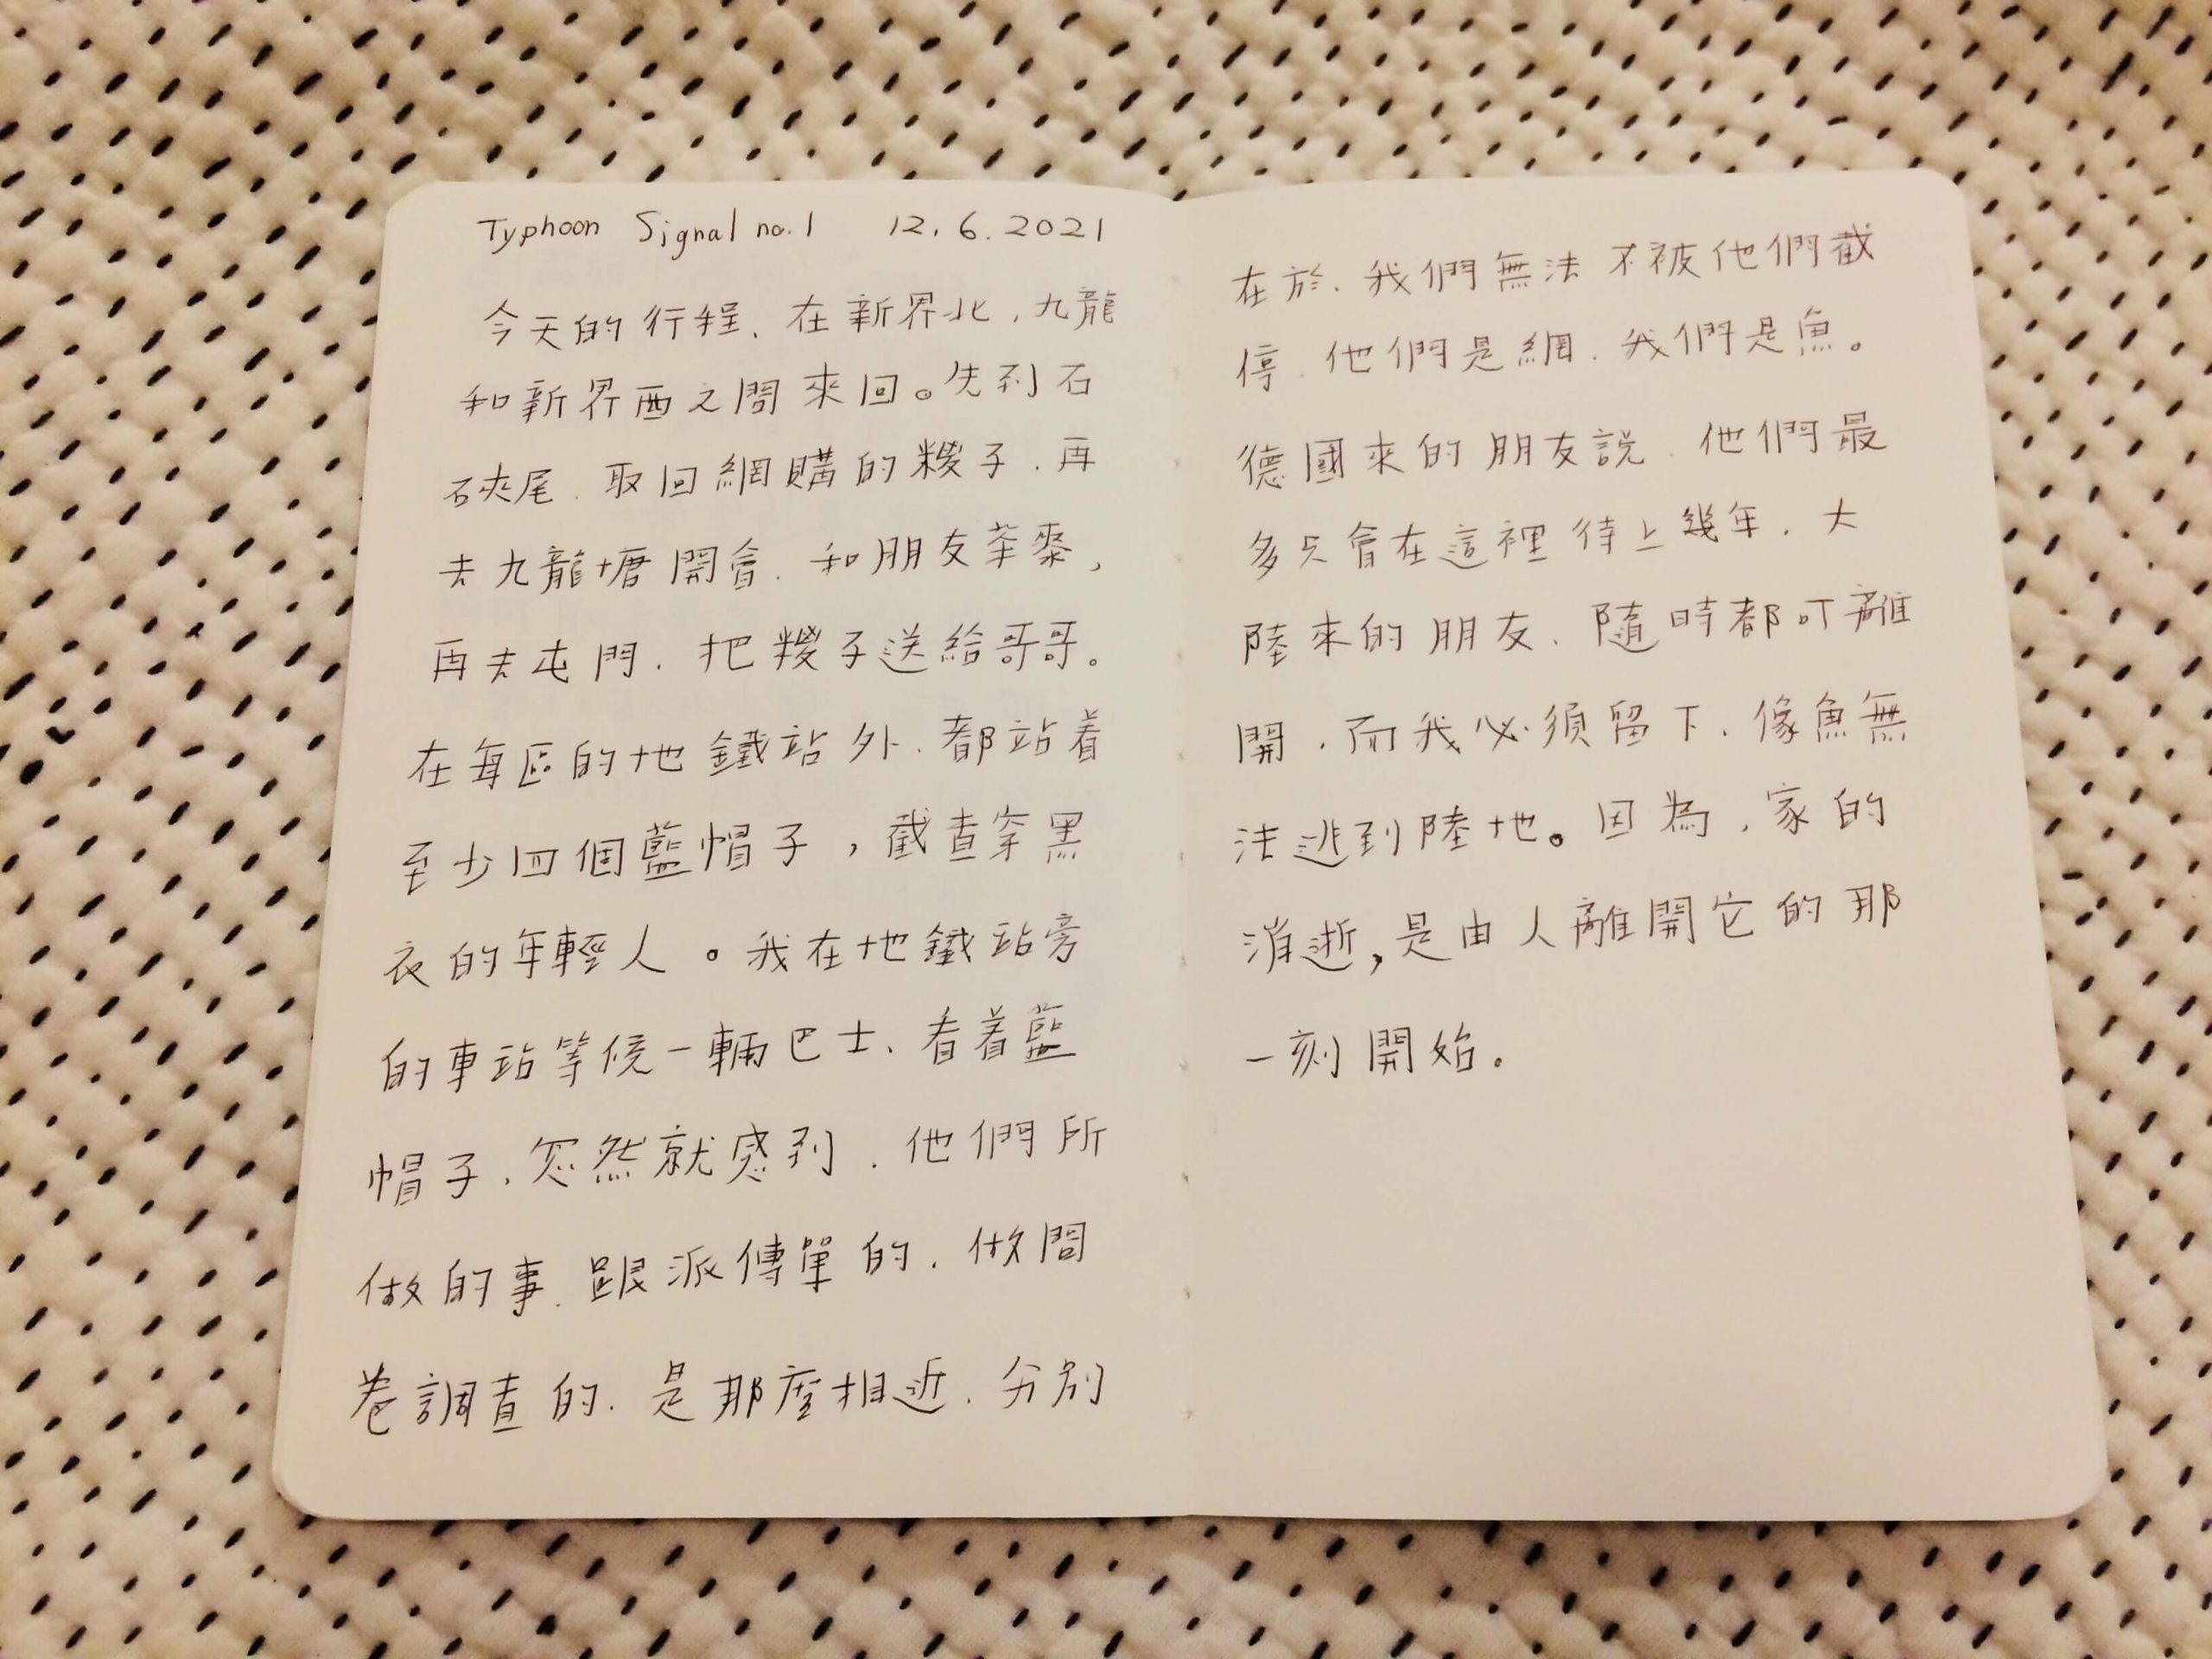 Typhoon Signal no.1 12.6.2021
今天的行程、在新界北,九龍
和新界西之間來回。先到石
硤尾、取回網購的糉子、再
去九龍塘開會、和朋友茶聚,
再去屯門、把糉子送給哥哥。
在每區的地鐵站外、都站着
至少四個藍帽子,截查穿黑
衣的年輕人。我在地鐵站旁
的車站等候一輛巴士、看着藍
帽子、忽然就感到、他們所
做的事、跟派傳單的、做問
卷調查的、是那麼相近、分別
在於、我們無法不被他們截
停、他們是網、我們是魚。
德國來的朋友説、他們最
多只會在這裡待上幾年、大
陸來的朋友、隨時都可離
開、而我必須留下、像魚無
法逃到陸地。因為,家的
消逝,是由人離開它的那
一刻開始。